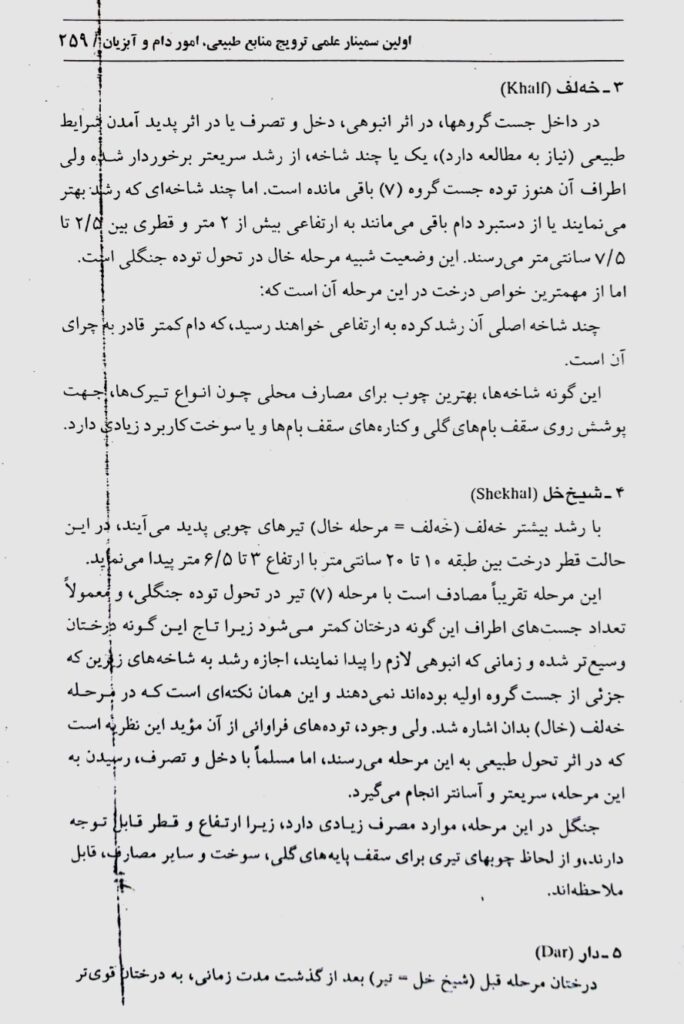 اولین سمینار علمی ترویج منابع طبیعی، امور دام و آبزیان / ۲۵۹
۳ ـ خه‌لف (Khalf)
در داخل جست گروهها، در اثر انبوهی، دخل و تصرف یا در اثر پدید آمدن شرایط
طبیعی (نیاز به مطالعه دارد)، یک یا چند شاخه، از رشد سریعتر برخوردار شده ولی
اطراف آن هنوز توده جست گروه (۷) باقی مانده است. اما چند شاخه‌ای که رشد بهتر
می‌نمایند یا از دستبرد دام باقی می‌مانند به ارتفاعی بیش از ۲ متر و قطری بین ۲/۵ تا
۷/۵ سانتی‌متر می‌رسند. این وضعیت شبیه مرحله خال در تحول توده جنگلی است.
اما از مهمترین خواص درخت در این مرحله آن است که:
چند شاخه اصلی آن رشد کرده به ارتفاعی خواهند رسید،که دام کمتر قادر به چرای
آن است.
این گونه شاخه‌ها، بهترین چوب برای مصارف محلی چون انواع تیرک‌ها، جهت
پوشش روی سقف بام‌های گلی و کناره‌های سقف بام‌ها و یا سوخت کاربرد زیادی دارد.
۴ ـ شیخ‌خل (Shekhal)
با رشد بیشتر خه‌لف (خه‌لف = مرحله خال) تیرهای چوبی پدید می‌آیند، در این
حالت قطر درخت بین طبقه ۱۰ تا ۲۰ سانتی‌متر با ارتفاع ۳ تا ۶/۵ متر پیدا می‌نماید.
این مرحله تقریباً مصادف است با مرحله (۷) تیر در تحول توده جنگلی، و معمولاً
تعداد جست‌های اطراف این گونه درختان کمتر می‌شود زیرا تاج این گونه درختان
وسیع‌تر شده و زمانی که انبوهی لازم را پیدا نمایند، اجازه رشد به شاخه‌های زیرین که
جزئی از جست گروه اولیه بوده‌اند نمی‌دهند و این همان نکته‌ای است که در مرحله
خه‌لف (خال) بدان اشاره شد. ولی وجود، توده‌های فراوانی از آن مؤید این نظریه است
که در اثر تحول طبیعی به این مرحله می‌رسند، اما مسلماً با دخل و تصرف، رسیدن به
این مرحله، سریعتر و آسانتر انجام می‌گیرد.
جنگل در این مرحله، موارد مصرف زیادی دارد، زیرا ارتفاع و قطر قابل توجه
دارند،و از لحاظ چوبهای تیری برای سقف پایه‌های گلی، سوخت و سایر مصارف، قابل
ملاحظه‌اند.
۵ ـ دار (Dar)
درختان مرحله قبل (شیخ خل = تیر) بعد از گذشت مدت زمانی، به درختان قوی‌تر